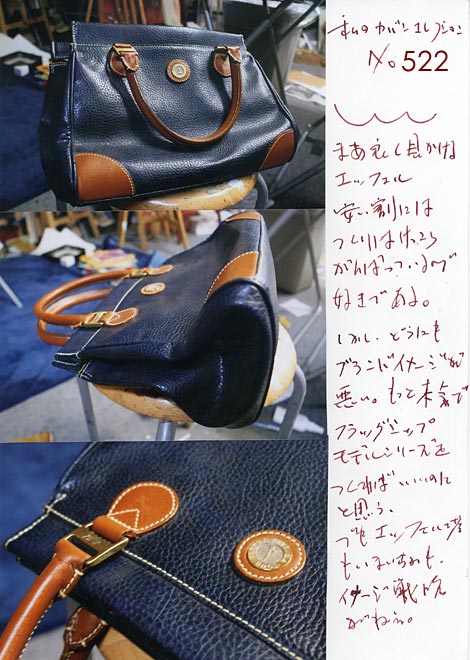 私のカバンコレクション
No. 522
まあよく見かける
エッフェル
安い割には
つくりはけっこう
がんばっているので
好きである。
しかし、どうにも
ブランドイメージが
悪い。もっと本気で
フラッグシップ
モデルシリーズを
つくればいいのに
と思う。
でもエッフェル塔
もいまいちかも。
イメージ戦略
がねぇ。